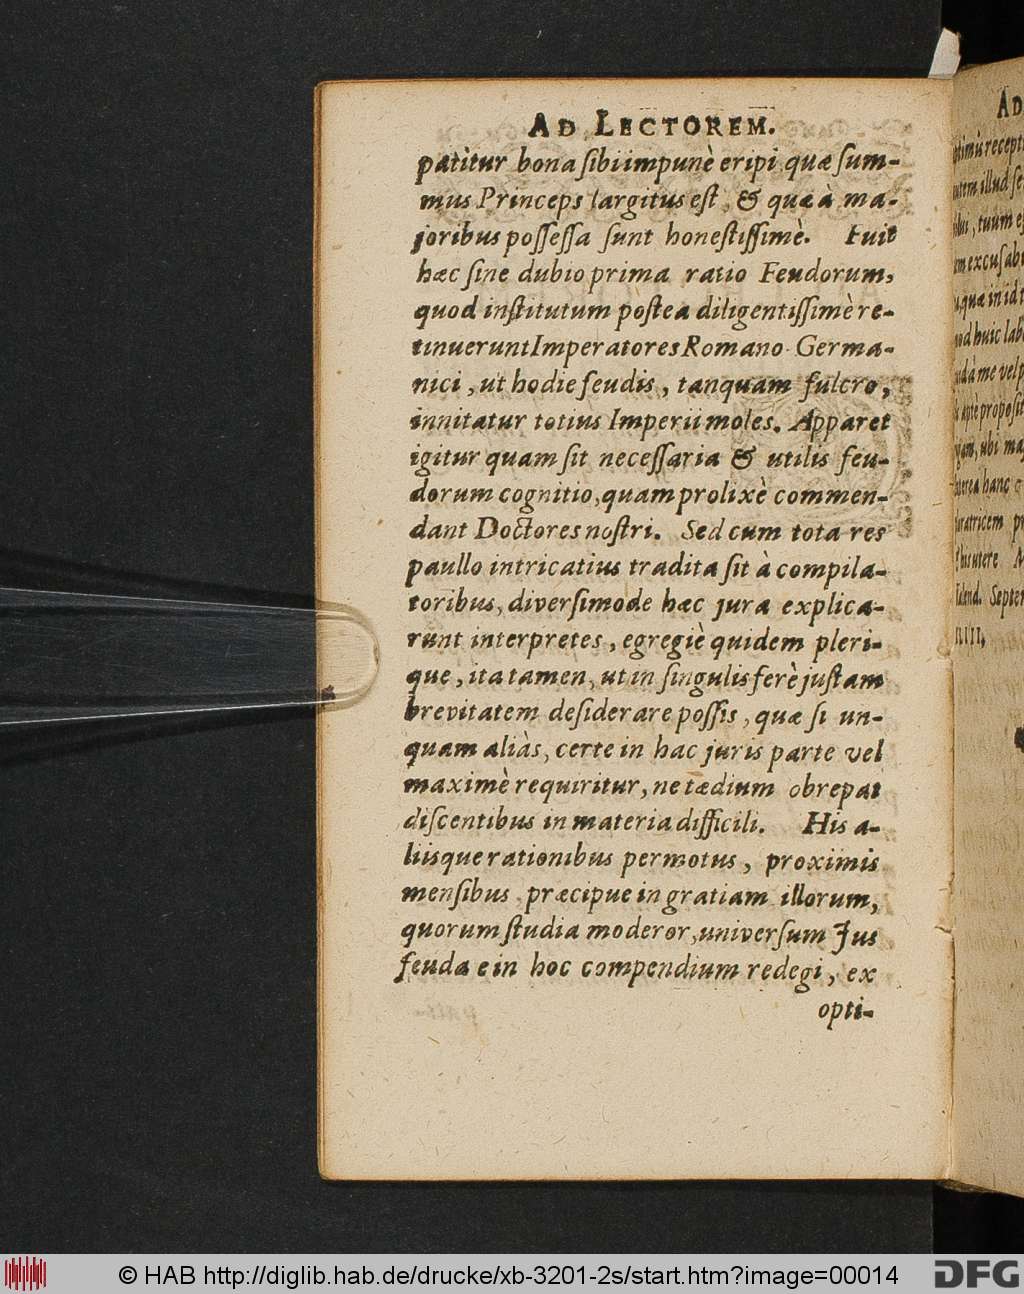 AD LECTOREM.
patitur bona sibi impunè eripi, quæ sum-
mus Princeps largitus est, & quæ à ma-
joribus possessa sunt honestissimè. Fuit
hæc sine dubio prima ratio Feudorum,
quod institutum postea diligentissimè re-
tinuerunt Imperatores Romano-Germa-
nici, ut hodie feudis, tanquam fulcro,
innitatur totius Imperii moles. Apparet
igitur quam sit necessaria & utilis feu-
dorum cognitio, quam prolixè commen-
dant Doctores nostri. Sed cum tota res
paullo intricatius tradita sit à compila-
toribus, diversimode hæc jura explica-
runt interpretes, egregiè quidem pleri-
que, ita tamen, ut in singulis ferè justam
brevitatem desiderare possis, quæ si un-
quam aliàs, certe in hac juris parte vel
maximè requiritur, ne tædium obrepat
discentibus in materia difficili. His a-
liisque rationibus permotus, proximis
mensibus præcipue in gratiam illorum,
quorum studia moderor, universum Jus
feudale in hoc compendium redegi, ex
opti-
AD
recept
illud se
, tuum
excusabi
quæ in id
huic lab
à me vel p
aptè proposit
, ubi
hanc
Septem
IIII,
© HAB http://diglib.hab.de/drucke/xb-3201-2s/start.htm?image=00014
DFG